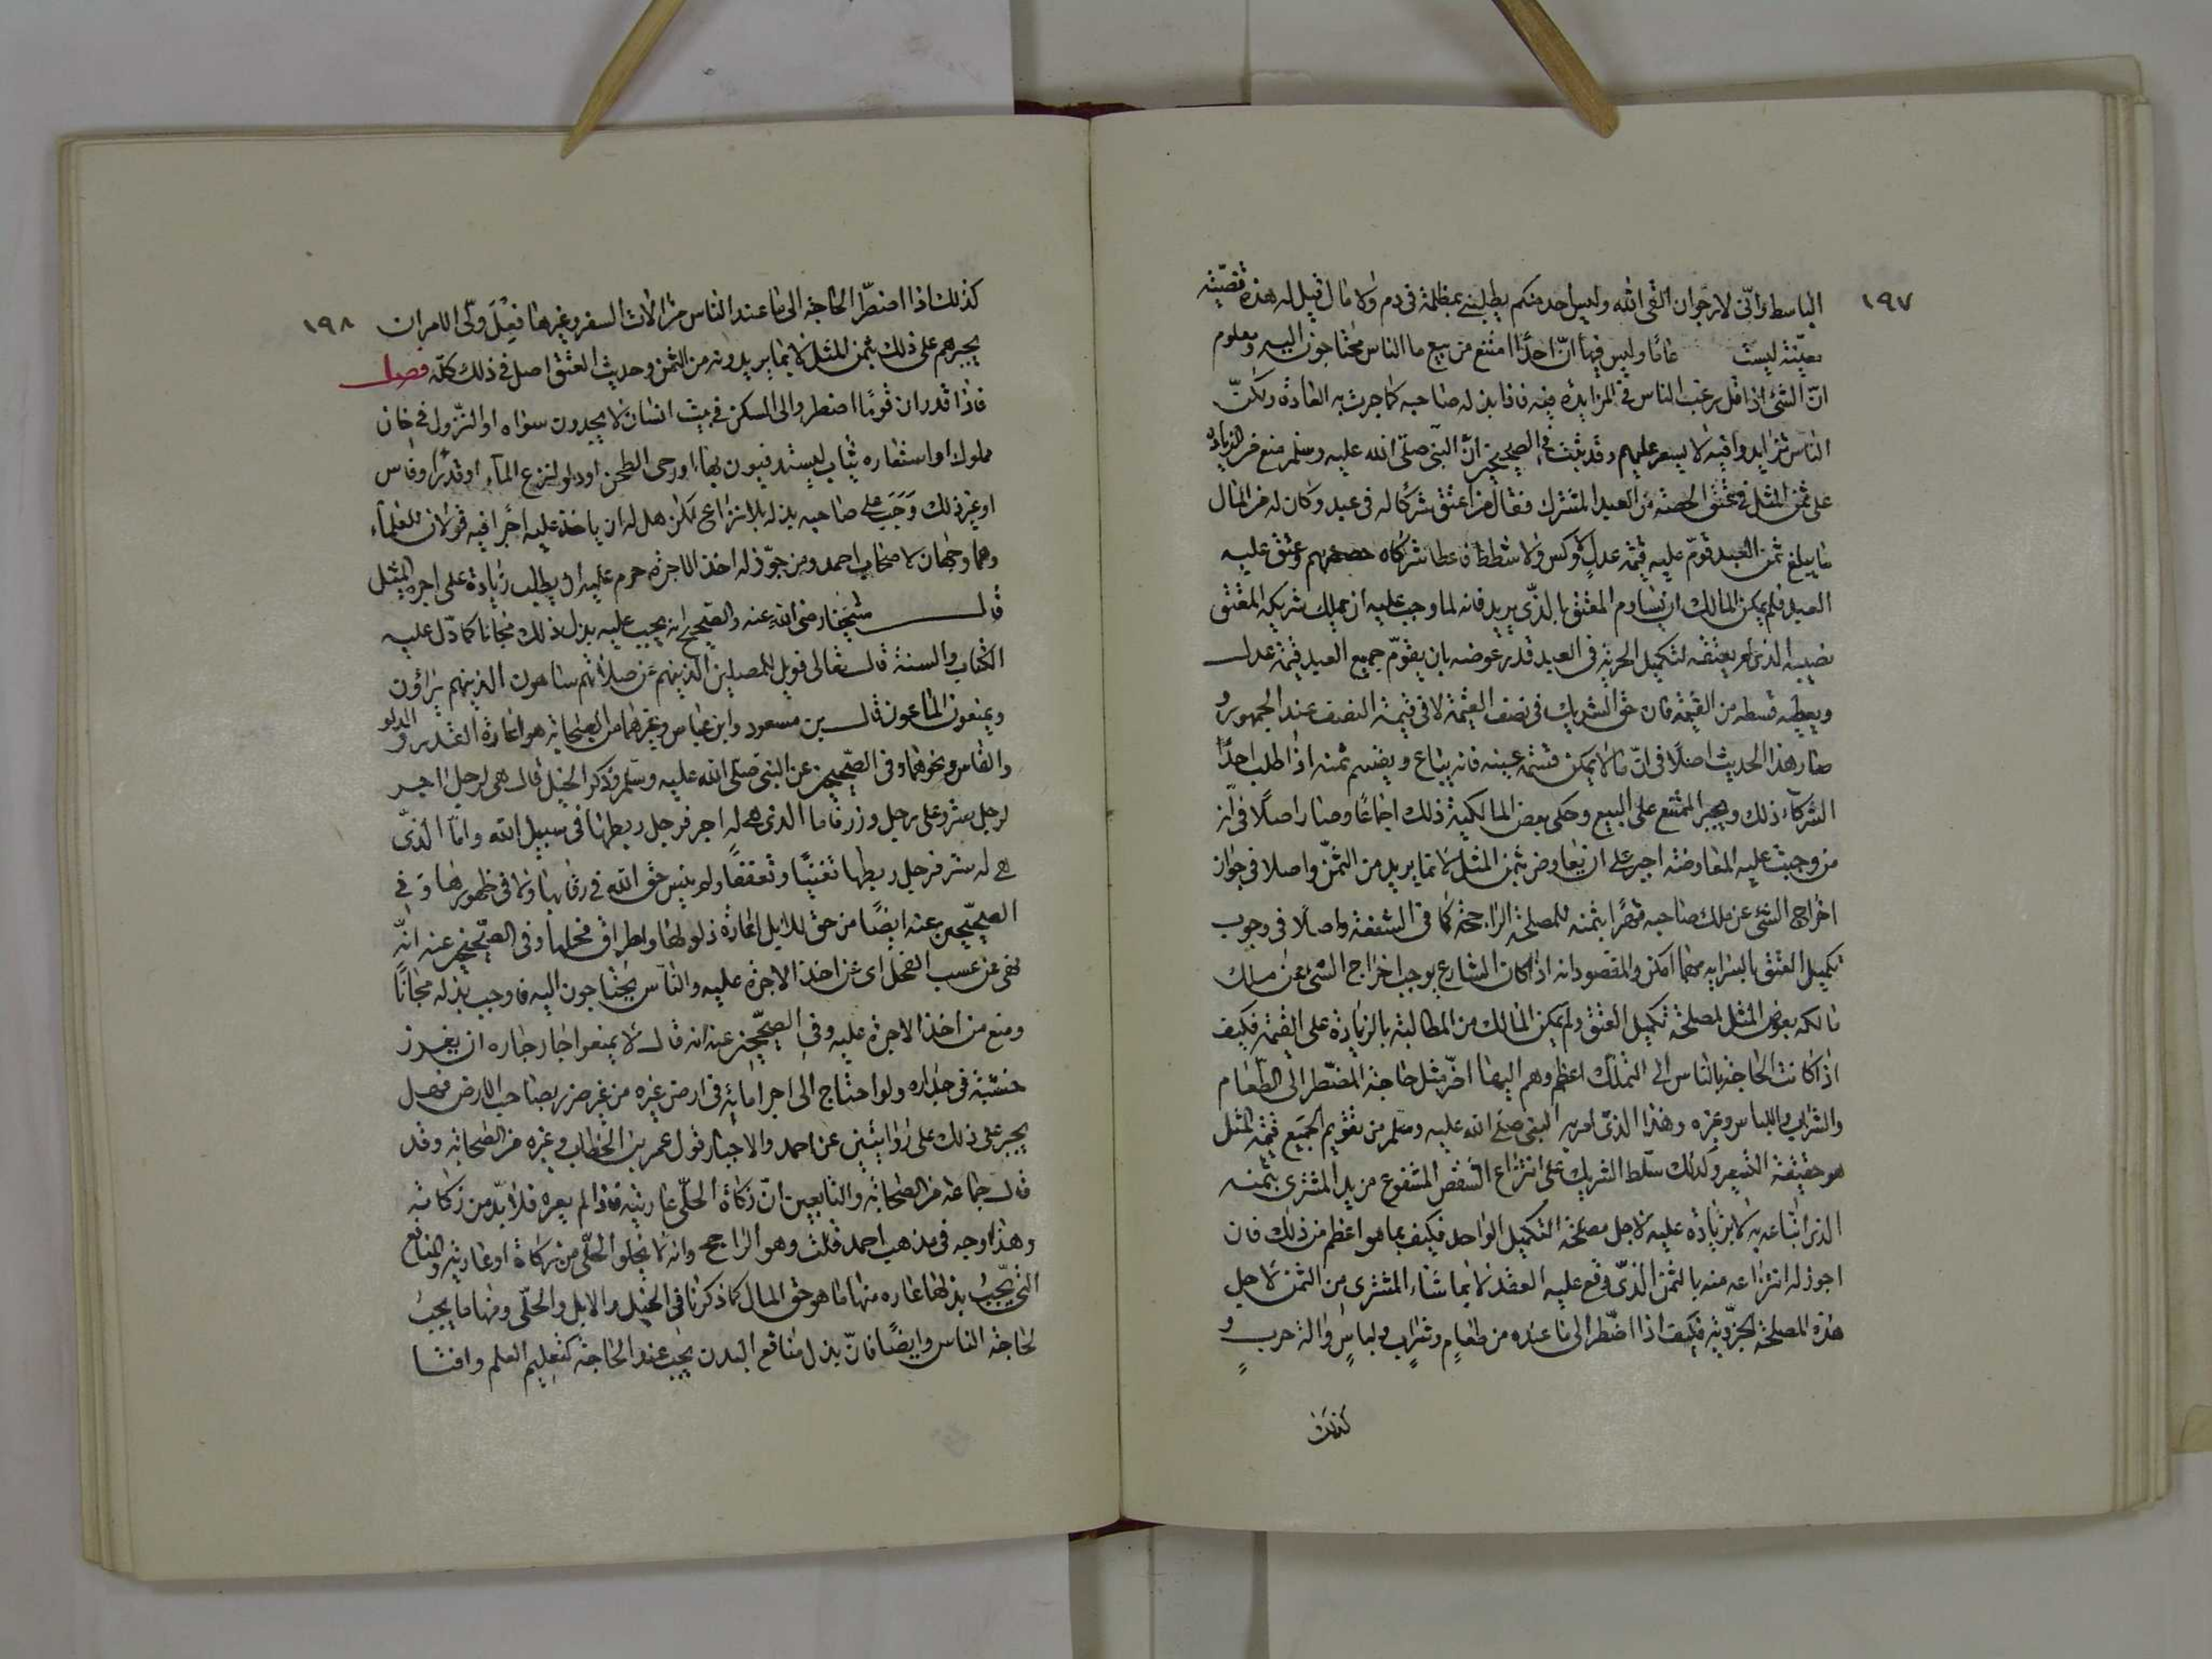 ١٩٧
الباسط وانّى لارجوان القى الله وليس احد منكم يطلبنى بمظلمة فى دم ولا مال قيل له هذه قضيّة
معيّنة ليست عامّا وليس فيها انّ احدًا امتنع من بيع ما الناس محتاجون اليه ومعلوم
انّ الشئ اذا قل رغب الناس فى المزايدة فيه فاذا بذله صاحبه كما جرت به العادة ولكنّ
الناس تزايدوا فيه لا يسعر عليهم وقد ثبت فى الصحيحين انّ النبى صلى الله عليه وسلم منع من الزيادة
على ثمن المثل فى عتق الحصة من العبد المشترك فقال من اعتق شركًا له فى عبد وكان له من المال
ما يبلغ ثمن العبد قوّم عليه قيمة عدل لا وكس ولا شطط فاعطا شركاه حصصهم وعتق عليه
العبد فلم يمكن المالك ان يساوم المعتق بالذى يريد فانه لما وجب عليه ان يملك شريكه المعتق
نصيبه الذى لم يعتقه لتكميل الحرية فى العبد قدر عوضه بان يقوّم جميع العبد قيمة عدل
ويعطيه قسطه من القيمة فان حق الشريك فى نصف القيمة لا فى قيمة النصف عند الجمهور و
صار هذا الحديث اصلًا فى انّ ما لا يمكن قسمة عينه فانه يباع ويقسم ثمنه اذا طلب احدًا
الشركاء ذلك ويجبر الممتنع على البيع وحكى بعض المالكية ذلك اجماعًا وصار اصلًا فى انّ
من وجبت عليه المعاوضة اجبر على ان يعاوض بثمن المثل لا بما يريد من الثمن واصلا فى جواز
اخراج الشئ عن ملك صاحبه قهرًا بثمنه للمصلحة الراجحة كما فى الشفعة واصلًا فى وجوب
تكميل العتق بالسراية مهما امكن والمقصود انه اذا كان الشارع يوجب اخراج الشئ عن ملك
مالكه بعوض المثل لمصلحة تكميل العتق ولم يمكن المالك من المطالبة بالزيادة على القيمة فكيف
اذا كانت الحاجة بالناس الى التملك اعظم وهم اليها اضرّ مثل حاجة المضطر الى الطعام
والشراب واللباس وغيره وهذا الذى امر به النبى صلى الله عليه وسلم من تقويم الجميع قيمة المثل
هو حقيقة التسعير وكذلك سلّط الشريك على انتزاع الشقص المشفوع من يد المشترى بثمنه
الذى ابتاعه به لا بزيادة عليه لاجل مصلحة التكميل الواحد فكيف بما هو اعظم من ذلك فان
اجوز له انتزاعه منه بالثمن الذى وقع عليه العقد لا بما شاء المشترى من الثمن لاجل
هذه المصلحة الجزويّة فكيف اذا اضطر الى ما عنده من طعامٍ وشرابٍ ولباسٍ والة حربٍ و
كذلك
١٩٨
كذلك اذا اضطرّ الحاجة الى ما عند الناس من الالات السفر وغيرها فعلى ولّى الامر ان
يجبرهم على ذلك بثمن المثل لا بما يريدونه من الثمن وحديث العتق اصل فى ذلك كلّه فصل
فاذا قدر ان قومًا اضطروا الى السكن فى بيت انسان لا يجدون سواه او النزول فى خان
مملوك او استعاره ثياب ليستدفيون بها او رحى الطحن او دلو لنزع الماء او قدرًا وفاس
او غير ذلك وَجَبَ على صاحبه بذله بلا نزاع لكن هل له ان ياخذ عليه اجرًا فيه قولان للعلماء
وهما وجهان لاصحاب احمد ومن جوّز له اخذ الاجرة حرم عليه ان يطلب زيادة على اجرة المثل
قال شيخنا رضى الله عنه والصحيح انه يجب عليه بذل ذلك مجانا كما دّل عليه
الكتاب والسنة قال تعالى فويل للمصلين الذينهم عن صلاتهم ساهون الذينهم يراؤن
ويمنعون الماعون قال بن مسعود وابن عباس وغيرهما من الصحابة هو اعارة القدر والدلو
والفاس ونحوها وفى الصحيحين عن النبى صلى الله عليه وسلم وذكر الخيل قال هى لرجل اجر
لرجل ستر وعلى رجل وزر فاما الذى هى له اجر فرجل ربطها فى سبيل الله وامّا الذى
هى له ستر فرجل ربطها تغنيًا وتعففًا ولم ينس حق الله فى رقابها ولا فى ظهورها وفى
الصحيحين عنه ايضًا من حق الابل اعارة ذلوها واطراق فحلها وفى الصحيحين عنه انّه
نهى عن عسب الفحل اى عن اخذ الاجرة عليه والناس يحتاجون اليه فاوجب بذله مجانًا
ومنع من اخذ الاجرة عليه وفى الصحيحين عنه انه قال لا يمنعوا جار جاره ان يغرز
خشبة فى جداره ولو احتاج الى اجرا مائه فى ارض غيره من غير ضرر بصاحب الارض فهل
يجبر على ذلك على روايتين عن احمد والاجبار قول عمر بن الخطاب وغيره من الصحابة وقد
قال جماعة من الصحابة والتابعين انّ زكاة الحلّى عاريته فاذا لم يعره فلا بدّ من زكاته
وهذا وجه فى مذهب احمد قلت وهو الراجح وانه لا يخلو الحلّى من زكاة او عارية والمنافع
التى يجب بذلها عاره منها ما هو حق المال كما ذكرنا فى الخيل والابل والحلّى ومنها ما يجب
لحاجة الناس وايضًا فانّ بذل منافع البدن يجب عند الحاجة كتعليم العلم وافتا